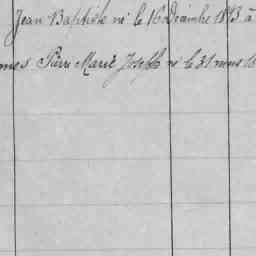 Jean Baptiste né le 16 Décembre 1813 à
Pierre Marie Joseph né le 31 mars